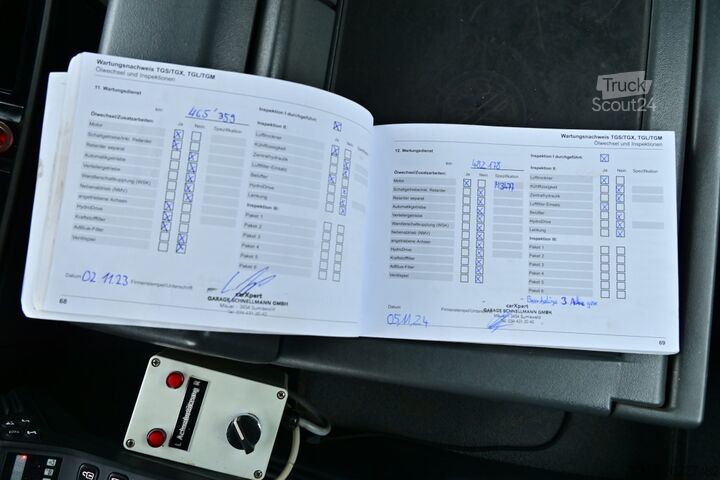 Wartungsnachweis TGS/TGX, TGL/TGM
Ölwechsel und Inspektionen
11. Wartungsdienst
km 465'359
Inspektion I durchgeführt:
Ölwechsel/Zusatzarbeiten: Ja Nein Spezifikation
Inspektion II: Ja Nein
Motor
Schaltgetriebe/inkl. Retarder
Retarder separat
Automatikgetriebe
Verteilergetriebe
Wandlerschaltkupplung (WSK)
Nebenabtrieb (NMV)
angetriebene Achsen
HydroDrive
Kraftstofffilter
AdBlue-Filter
Ventilspiel
Lufttrockner
Kühlflüssigkeit
Zentralhydraulik
Luftfilter-Einsatz
Belüfter
HydroDrive
Lenkung
Inspektion III:
Paket 1
Paket 2
Paket 3
Paket 4
Paket 5
Paket 6
Datum 02.11.23
Firmenstempel/Unterschrift
carXpert
GARAGE SCHNELLMANN GMBH
3454 Sumiswald
68
Wartungsnachweis TGS/TGX, TGL/TGM
Ölwechsel und Inspektionen
12. Wartungsdienst
km 482'178
Inspektion I durchgeführt:
Ölwechsel/Zusatzarbeiten: Ja Nein Spezifikation
Inspektion II: Ja Nein Spezifikation
Motor M3477
Schaltgetriebe/inkl. Retarder
Retarder separat
Automatikgetriebe
Verteilergetriebe
Wandlerschaltkupplung (WSK)
Nebenabtrieb (NMV)
angetriebene Achsen
HydroDrive
Kraftstofffilter
AdBlue-Filter
Ventilspiel
Lufttrockner
Kühlflüssigkeit
Zentralhydraulik
Luftfilter-Einsatz
Belüfter
HydroDrive
Lenkung
Inspektion III:
Paket 1
Paket 2
Paket 3
Paket 4
Paket 5
Paket 6
3 Achse
Datum 05.11.24
Firmenstempel/Unterschrift
carXpert
GARAGE SCHNELLMANN GMBH
3454 Sumiswald
69
Truck
Scout24